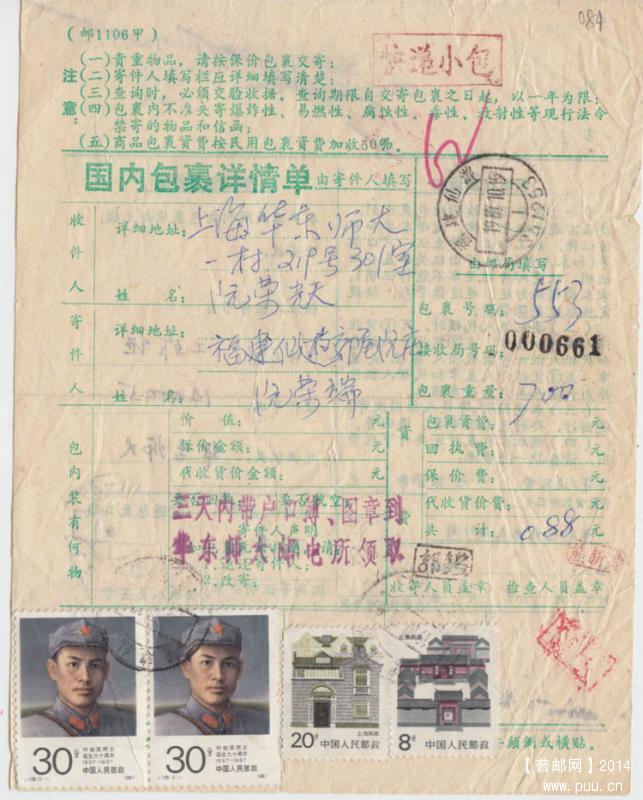 084
(邮1106甲)
快递小包
注意:
(一)贵重物品,请按保价包裹交寄;
(二)寄件人填写栏应详细填写清楚;
(三)查询时,必须交验收据。查询期限自交寄包裹之日起,以一年为限;
(四)包裹内不准夹寄爆炸性、易燃性、腐蚀性、毒性、放射性等现行法令
禁寄的物品和信函;
(五)商品包裹资费按民用包裹资费加收50%。
62
国内包裹详情单 由寄件人填写
福建仙游
由邮局填写
收件人
详细地址:上海华东师大
一村219号301室
姓名:阮荣
寄件人
详细地址:福建仙游郊尾阮庄
姓名:阮荣瑞
包裹号码:553
接收局号码:000661
包裹重量:700
包内装有何物
价值:元
保价金额:元
代收货价金额:元
寄件人声明
2.改寄:
三天内带户口簿、图章到
华东师大邮电所领取
资费
包裹资费:元
回执费:元
保价费:元
代收货价费:元
共计:0.88元
收寄人员盖章 检查人员盖章
30分
叶剑英同志
诞生九十周年
1897-1987
中国人民邮政
1987
30分
叶剑英同志
诞生九十周年
1897-1987
中国人民邮政
1987
上海民居
20分 中国人民邮政
上海民居
8分 中国人民邮政
颠倒或横贴。
【普邮网】2014
www.puu.cn